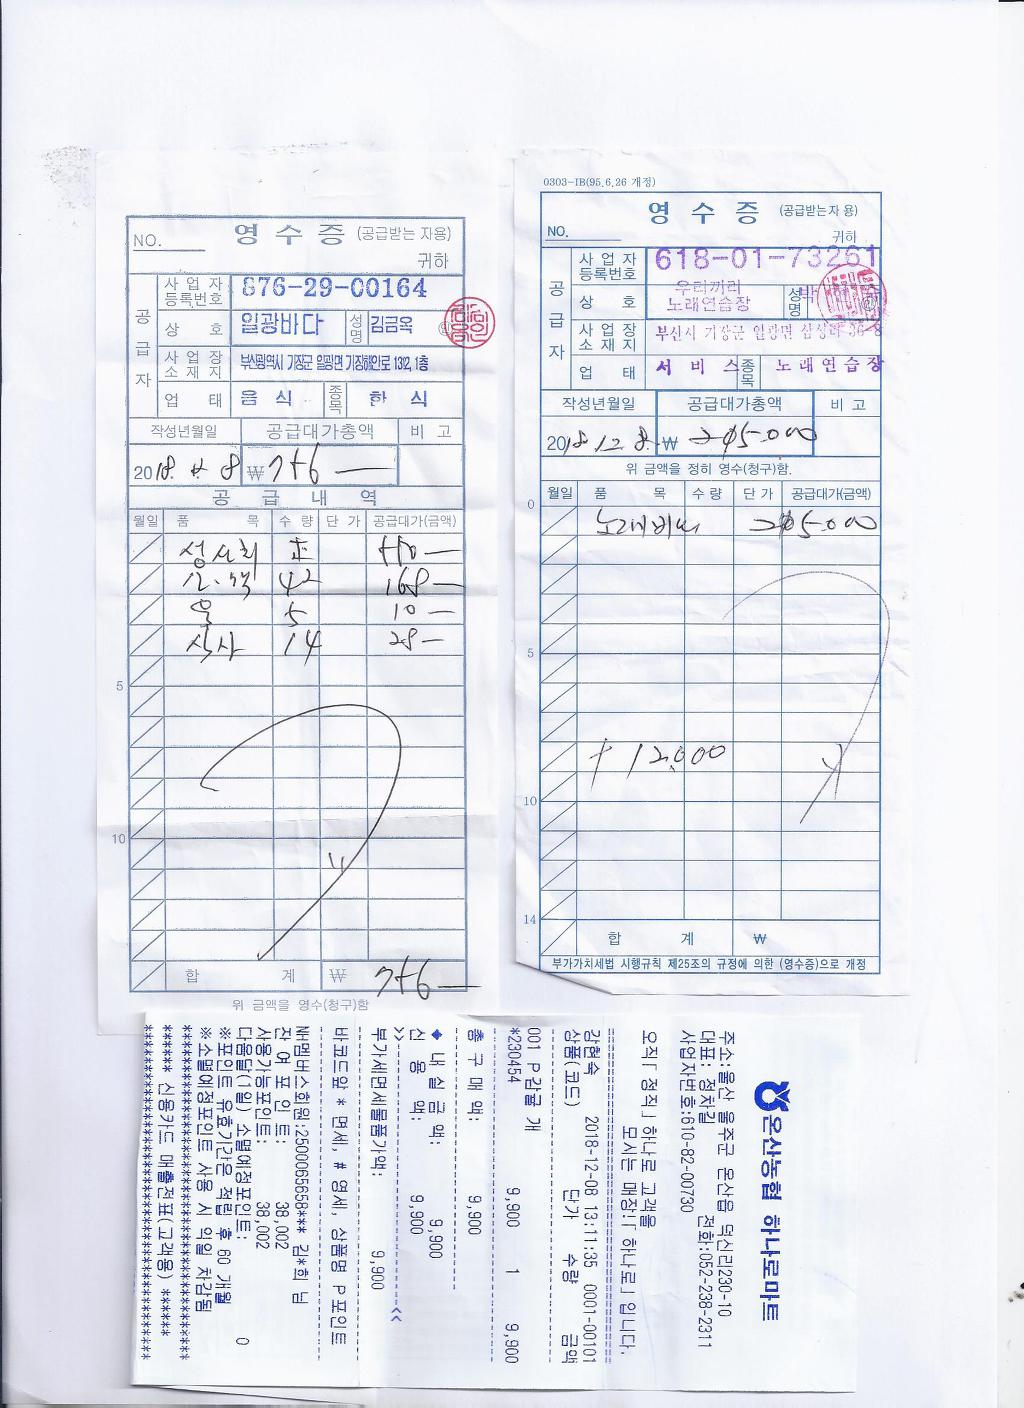 영 수 증 (공급받는 자용)
NO.
귀하
공급자
사업자등록번호 876-29-00164
상 호 일광바다 성명 김금옥
사업장소재지 부산광역시 기장군 일광면 기장해안로 1312, 1층
업 태 음 식 종목 한 식
작성년월일 공급대가총액 비 고
2018. 12. 8 ₩
공 급 내 역
월일 품 목 수 량 단 가 공급대가(금액)
42 168-
물 5 10-
식사 14 28-
5
10
합 계 ₩
위 금액을 영수(청구)함
0303-IB(95.6.26 개정)
영 수 증 (공급받는자 용)
NO.
귀하
공급자
사업자등록번호 618-01-73261
상 호 우리끼리 노래연습장 성명 박
사업장소재지 부산시 기장군 일광면 삼성리
업 태 서 비 스 종목 노래연습장
작성년월일 공급대가총액 비 고
2018.12.8. ₩
위 금액을 정히 영수(청구)함.
월일 품 목 수 량 단 가 공급대가(금액)
0
노래비
5
+ 12,000
10
14
합 계 ₩
부가가치세법 시행규칙 제25조의 규정에 의한 (영수증)으로 개정
온산농협 하나로마트
주소:울산 울주군 온산읍 덕신리230-10
대표: 정차길 전화:052-238-2311
사업자번호:610-82-00730
오직「정직」하나로 고객을
모시는 매장:「하나로」입니다.
강현숙 2018-12-08 13:11:35 0001-00101
상품(코드) 단가 수량 금액
001 P감귤 개
*230454 9,900 1 9,900
총 구 매 액: 9,900
◆ 내 실 금 액: 9,900
신 용 액: 9,900
>> <<
부가세면세물품가액: 9,900
바코드앞 * 면세, # 영세, 상품명 P 포인트
새멤버스회원:2500065658*** 김*희 님
잔 여 포 인 트: 38,002
사용가능포인트: 38,002
다음달(1일) 소멸예정포인트: 0
※포인트 유효기간은 적립 후 60 개월
※소멸예정포인트 사용 시 익일 차감됨
****** 신용카드 매출전표(고객용) ******